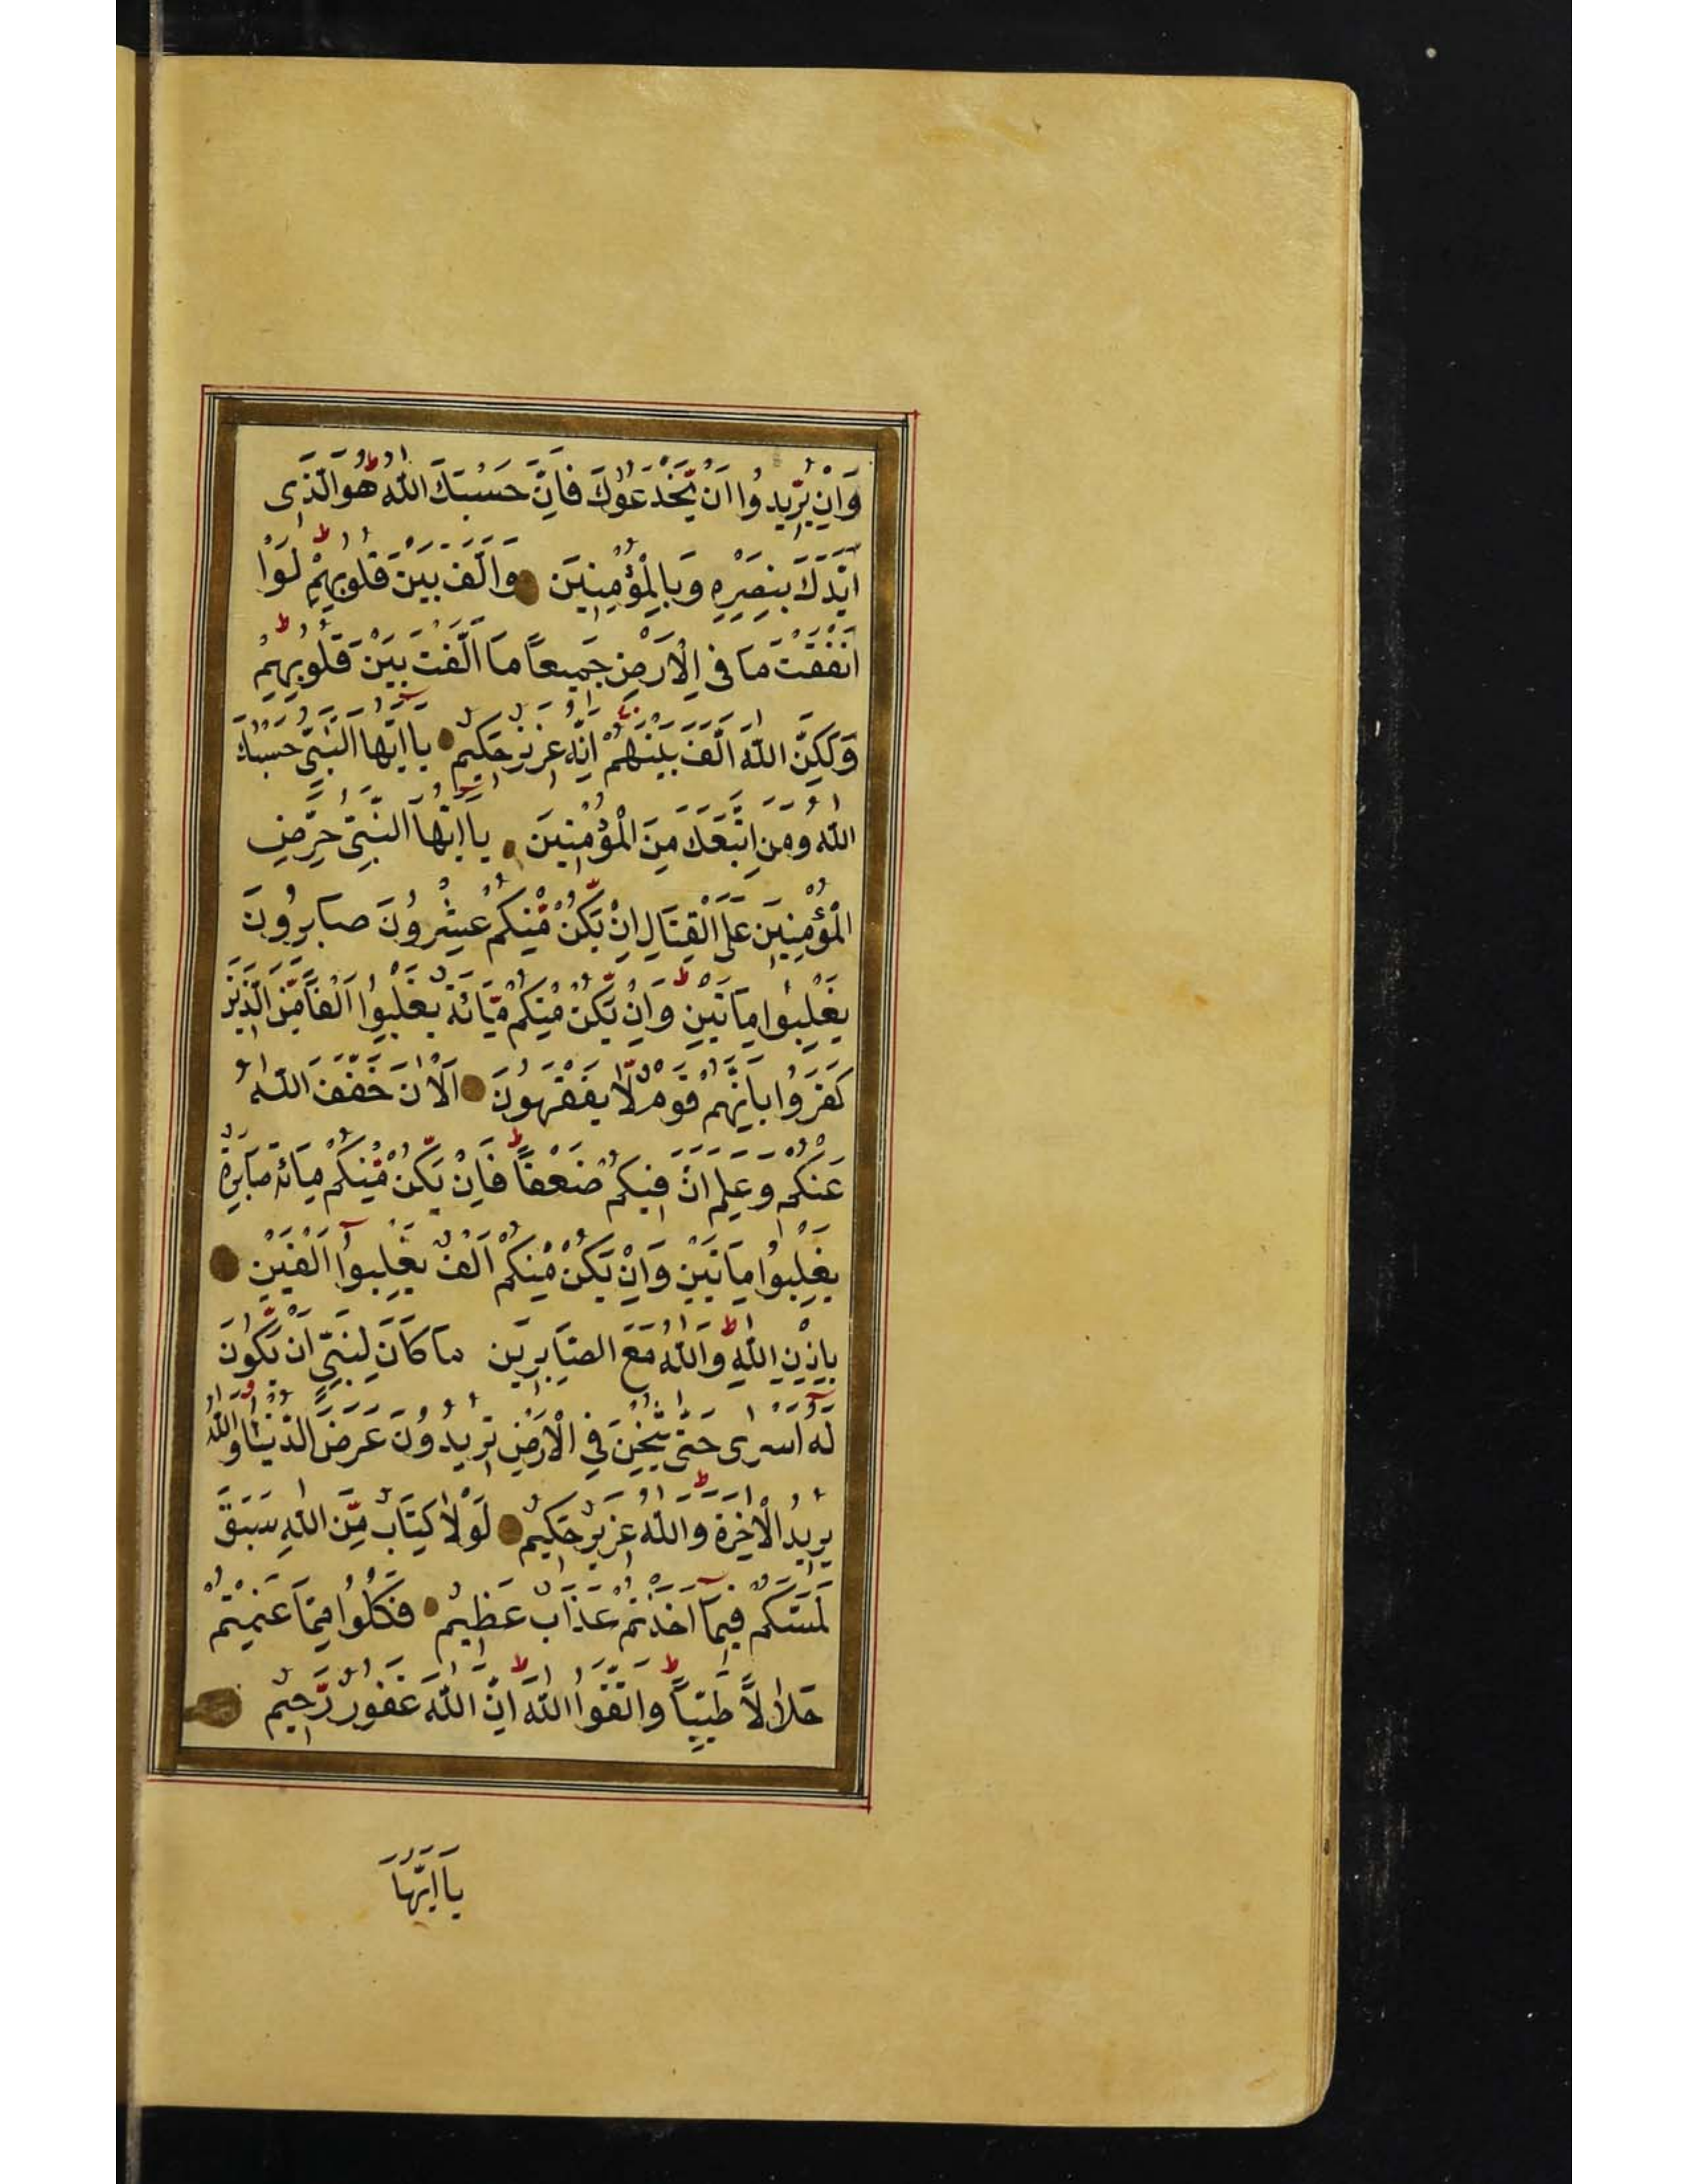 وَاِنْ يُّرِيدُوا اَنْ يَّخْدَعُوكَ فَاِنَّ حَسْبَكَ اللّٰهُ ط هُوَ الَّذِى
اَيَّدَكَ بِنَصْرِهِ وَبِالْمُؤْمِنِينَ وَاَلَّفَ بَيْنَ قُلُوبِهِمْ ط لَوْا
اَنْفَقْتَ مَا فِى الْاَرْضِ جَمِيعًا مَا اَلَّفْتَ بَيْنَ قُلُوبِهِمْ ط
وَلٰكِنَّ اللّٰهَ اَلَّفَ بَيْنَهُمْ اِنَّهُ عَزِيزٌ حَكِيمٌ يَا اَيُّهَا النَّبِىُّ حَسْبُكَ
اللّٰهُ وَمَنِ اتَّبَعَكَ مِنَ الْمُؤْمِنِينَ يَا اَيُّهَا النَّبِىُّ حَرِّضِ
الْمُؤْمِنِينَ عَلَى الْقِتَالِ اِنْ يَّكُنْ مِّنْكُمْ عِشْرُونَ صَابِرُونَ
يَغْلِبُوا مِاَتَيْنِ ط وَاِنْ يَّكُنْ مِّنْكُمْ مِّائَةٌ يَّغْلِبُوا اَلْفًا مِّنَ الَّذِينَ
كَفَرُوا بِاَنَّهُمْ قَوْمٌ لَّا يَفْقَهُونَ اَلْاٰنَ خَفَّفَ اللّٰهُ
عَنْكُمْ وَعَلِمَ اَنَّ فِيكُمْ ضَعْفًا ط فَاِنْ يَّكُنْ مِّنْكُمْ مِائَةٌ صَابِرَةٌ
يَغْلِبُوا مِاَتَيْنِ وَاِنْ يَكُنْ مِنْكُمْ اَلْفٌ يَغْلِبُوا اَلْفَيْنِ
بِاِذْنِ اللّٰهِ ط وَاللّٰهُ مَعَ الصَّابِرِينَ مَا كَانَ لِنَبِىٍّ اَنْ يَّكُونَ
لَهُ اَسْرٰى حَتّٰى يُثْخِنَ فِى الْاَرْضِ تُرِيدُونَ عَرَضَ الدُّنْيَا وَاللّٰهُ
يُرِيدُ الْاٰخِرَةَ ط وَاللّٰهُ عَزِيزٌ حَكِيمٌ لَوْلَا كِتَابٌ مِّنَ اللّٰهِ سَبَقَ
لَمَسَّكُمْ فِيمَآ اَخَذْتُمْ عَذَابٌ عَظِيمٌ فَكُلُوا مِمَّا غَنِمْتُمْ
حَلَالًا طَيِّبًا ط وَاتَّقُوا اللّٰهَ ط اِنَّ اللّٰهَ غَفُورٌ رَّحِيمٌ
يَا اَيُّهَا